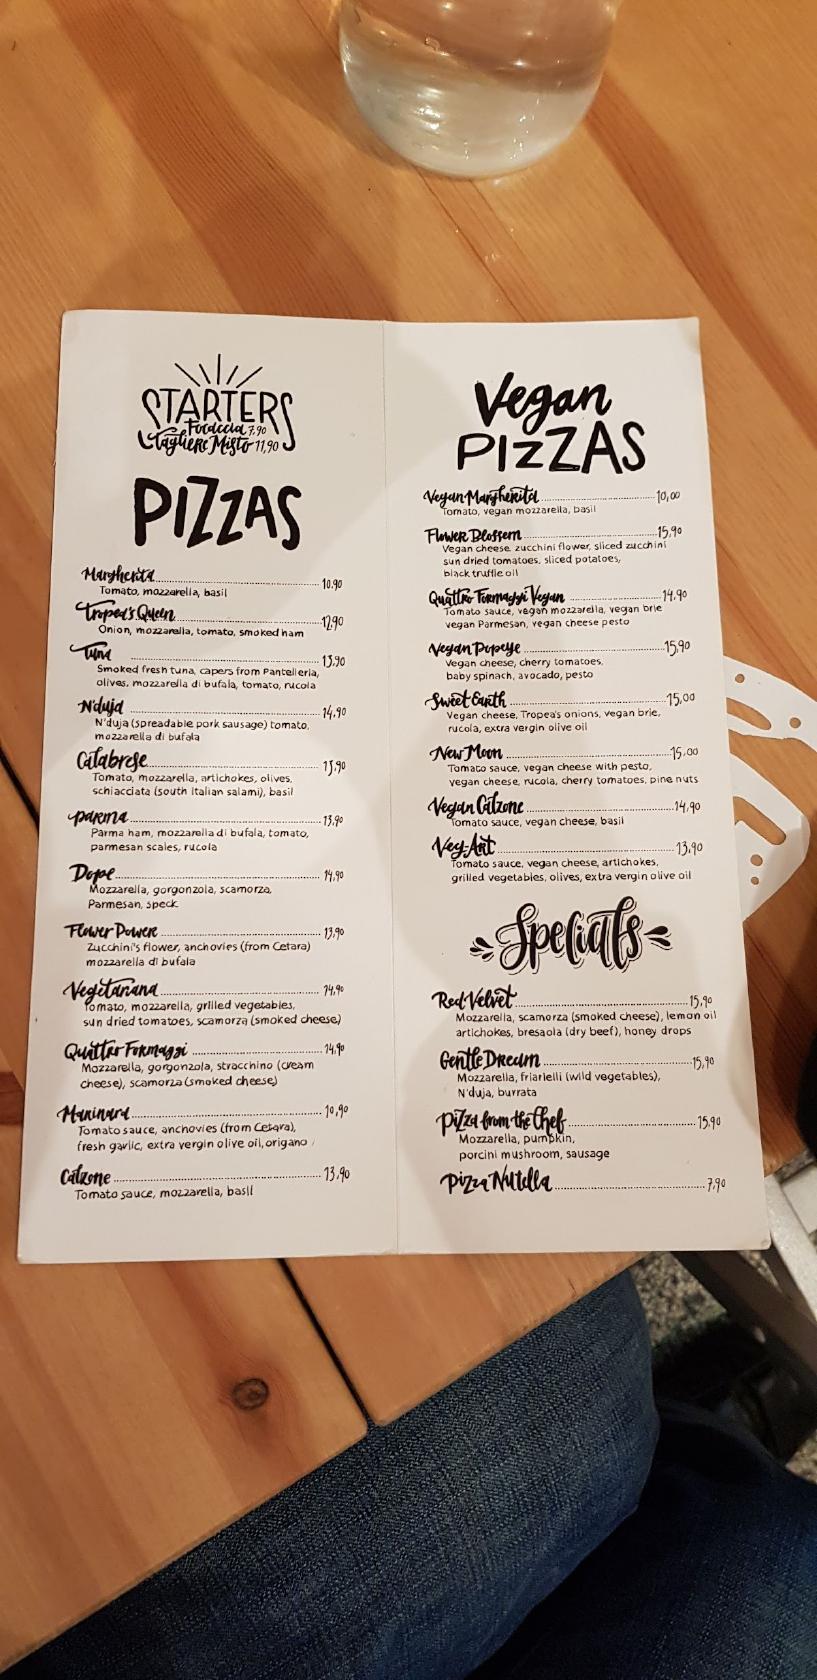 STARTERS
Focaccia 7,90
Tagliere Misto 11,90
PIZZAS
Margherita 10,90
Tomato, mozzarella, basil
Tropea's Queen 12,90
Onion, mozzarella, tomato, smoked ham
Tuna 13,90
Smoked fresh tuna, capers from Pantelleria,
olives, mozzarella di bufala, tomato, rucola
N'duja 14,90
N'duja (spreadable pork sausage) tomato,
mozzarella di bufala
Calabrese 13,90
Tomato, mozzarella, artichokes, olives,
schiacciata (south italian salami), basil
Parma 13,90
Parma ham, mozzarella di bufala, tomato,
parmesan scales, rucola
Dope 14,90
Mozzarella, gorgonzola, scamorza,
Parmesan, speck
Flower Power 13,90
Zucchini's flower, anchovies (from Cetara)
mozzarella di bufala
Vegetariana 14,90
Tomato, mozzarella, grilled vegetables,
sun dried tomatoes, scamorza (smoked cheese)
Quattro Formaggi 14,90
Mozzarella, gorgonzola, stracchino (cream
cheese), scamorza (smoked cheese)
Marinara 10,90
Tomato sauce, anchovies (from Cetara),
fresh garlic, extra vergin olive oil, origano
Calzone 13,90
Tomato sauce, mozzarella, basil
Vegan
PIZZAS
Vegan Margherita 10,00
Tomato, vegan mozzarella, basil
Flower Blossem 15,90
Vegan cheese, zucchini flower, sliced zucchini
sun dried tomatoes, sliced potatoes,
black truffle oil
Quattro Formaggi Vegan 14,90
Tomato sauce, vegan mozzarella, vegan brie
vegan Parmesan, vegan cheese pesto
Vegan Popeye 15,90
Vegan cheese, cherry tomatoes,
baby spinach, avocado, pesto
Sweet Earth 15,00
Vegan cheese, Tropea's onions, vegan brie,
rucola, extra vergin olive oil
New Moon 15,00
Tomato sauce, vegan cheese with pesto,
vegan cheese, rucola, cherry tomatoes, pine nuts
Vegan Calzone 14,90
Tomato sauce, vegan cheese, basil
Veg-Art 13,90
Tomato sauce, vegan cheese, artichokes,
grilled vegetables, olives, extra vergin olive oil
Specials
Red Velvet 15,90
Mozzarella, scamorza (smoked cheese), lemon oil
artichokes, bresaola (dry beef), honey drops
Gentle Dream 15,90
Mozzarella, friarielli (wild vegetables),
N'duja, burrata
Pizza from the Chef 15,90
Mozzarella, pumpkin,
porcini mushroom, sausage
Pizza Nutella 7,90